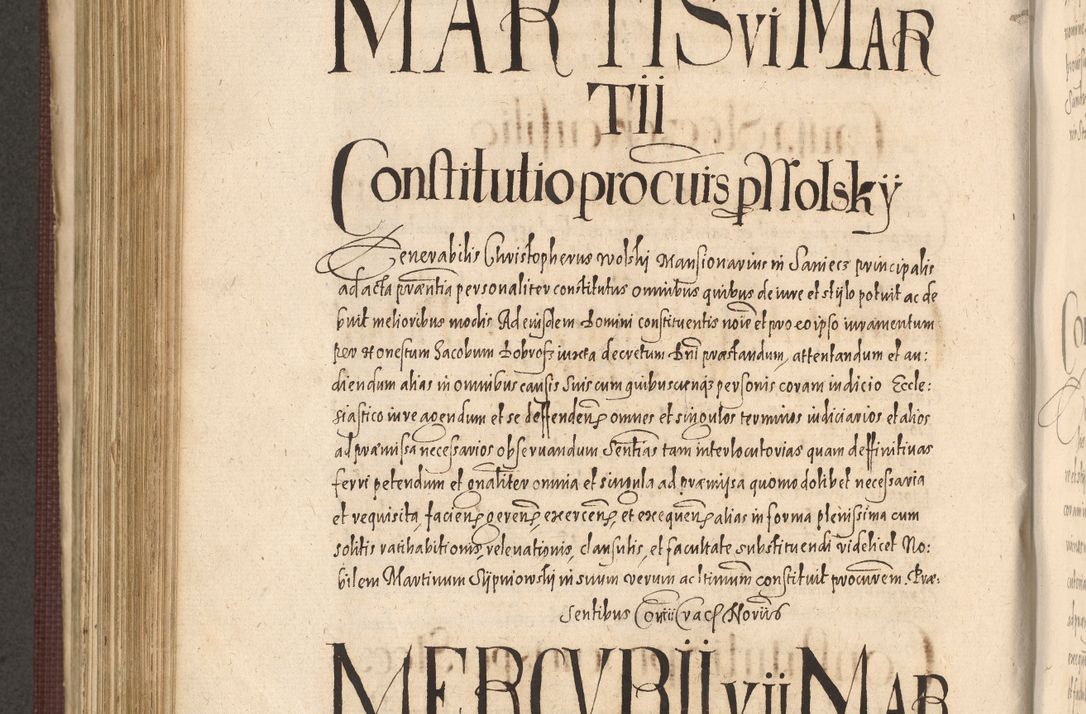 MARTIS vi MAR
Tii
Constitutio procuris p Wolskÿ
Venerabilis Christopherus Wolski Mansionarius in Zaniecz principalis
ad acta præntia personaliter constitutus omnibus quibus de iure et stylo potuit ac de
buit melioribus modis Ad eiusdem Domini constituentis noie et pro eo ipso iuramentum
per Honestum Jacobum Dobrosz iuxta decretum Dni præstandum, attentandum et au:
diendum alias in omnibus causis suis cum quibuscunq3 personis coram iudicio Eccle:
siastico iure agendum et se deffenden omnes et singulos terminos iudiciarios et alios
ad præmissa necessarios observandum Sentias tam interlocutorias quam deffinitivas
ferri petendum et gnaliter omnia et singula ad præmissa quomodolibet necessaria
et requisita, facien geren exercen et exequen alias in forma plenissima cum
solitis ratihabitionis, relevationis, clausulis, et facultate substituendi videlicet No:
bilem Martinum Slypniowski in suum verum ac ltimum constituit procurem. Præ:
sentibus Cracz Noriis
MERCVRII vii MAR